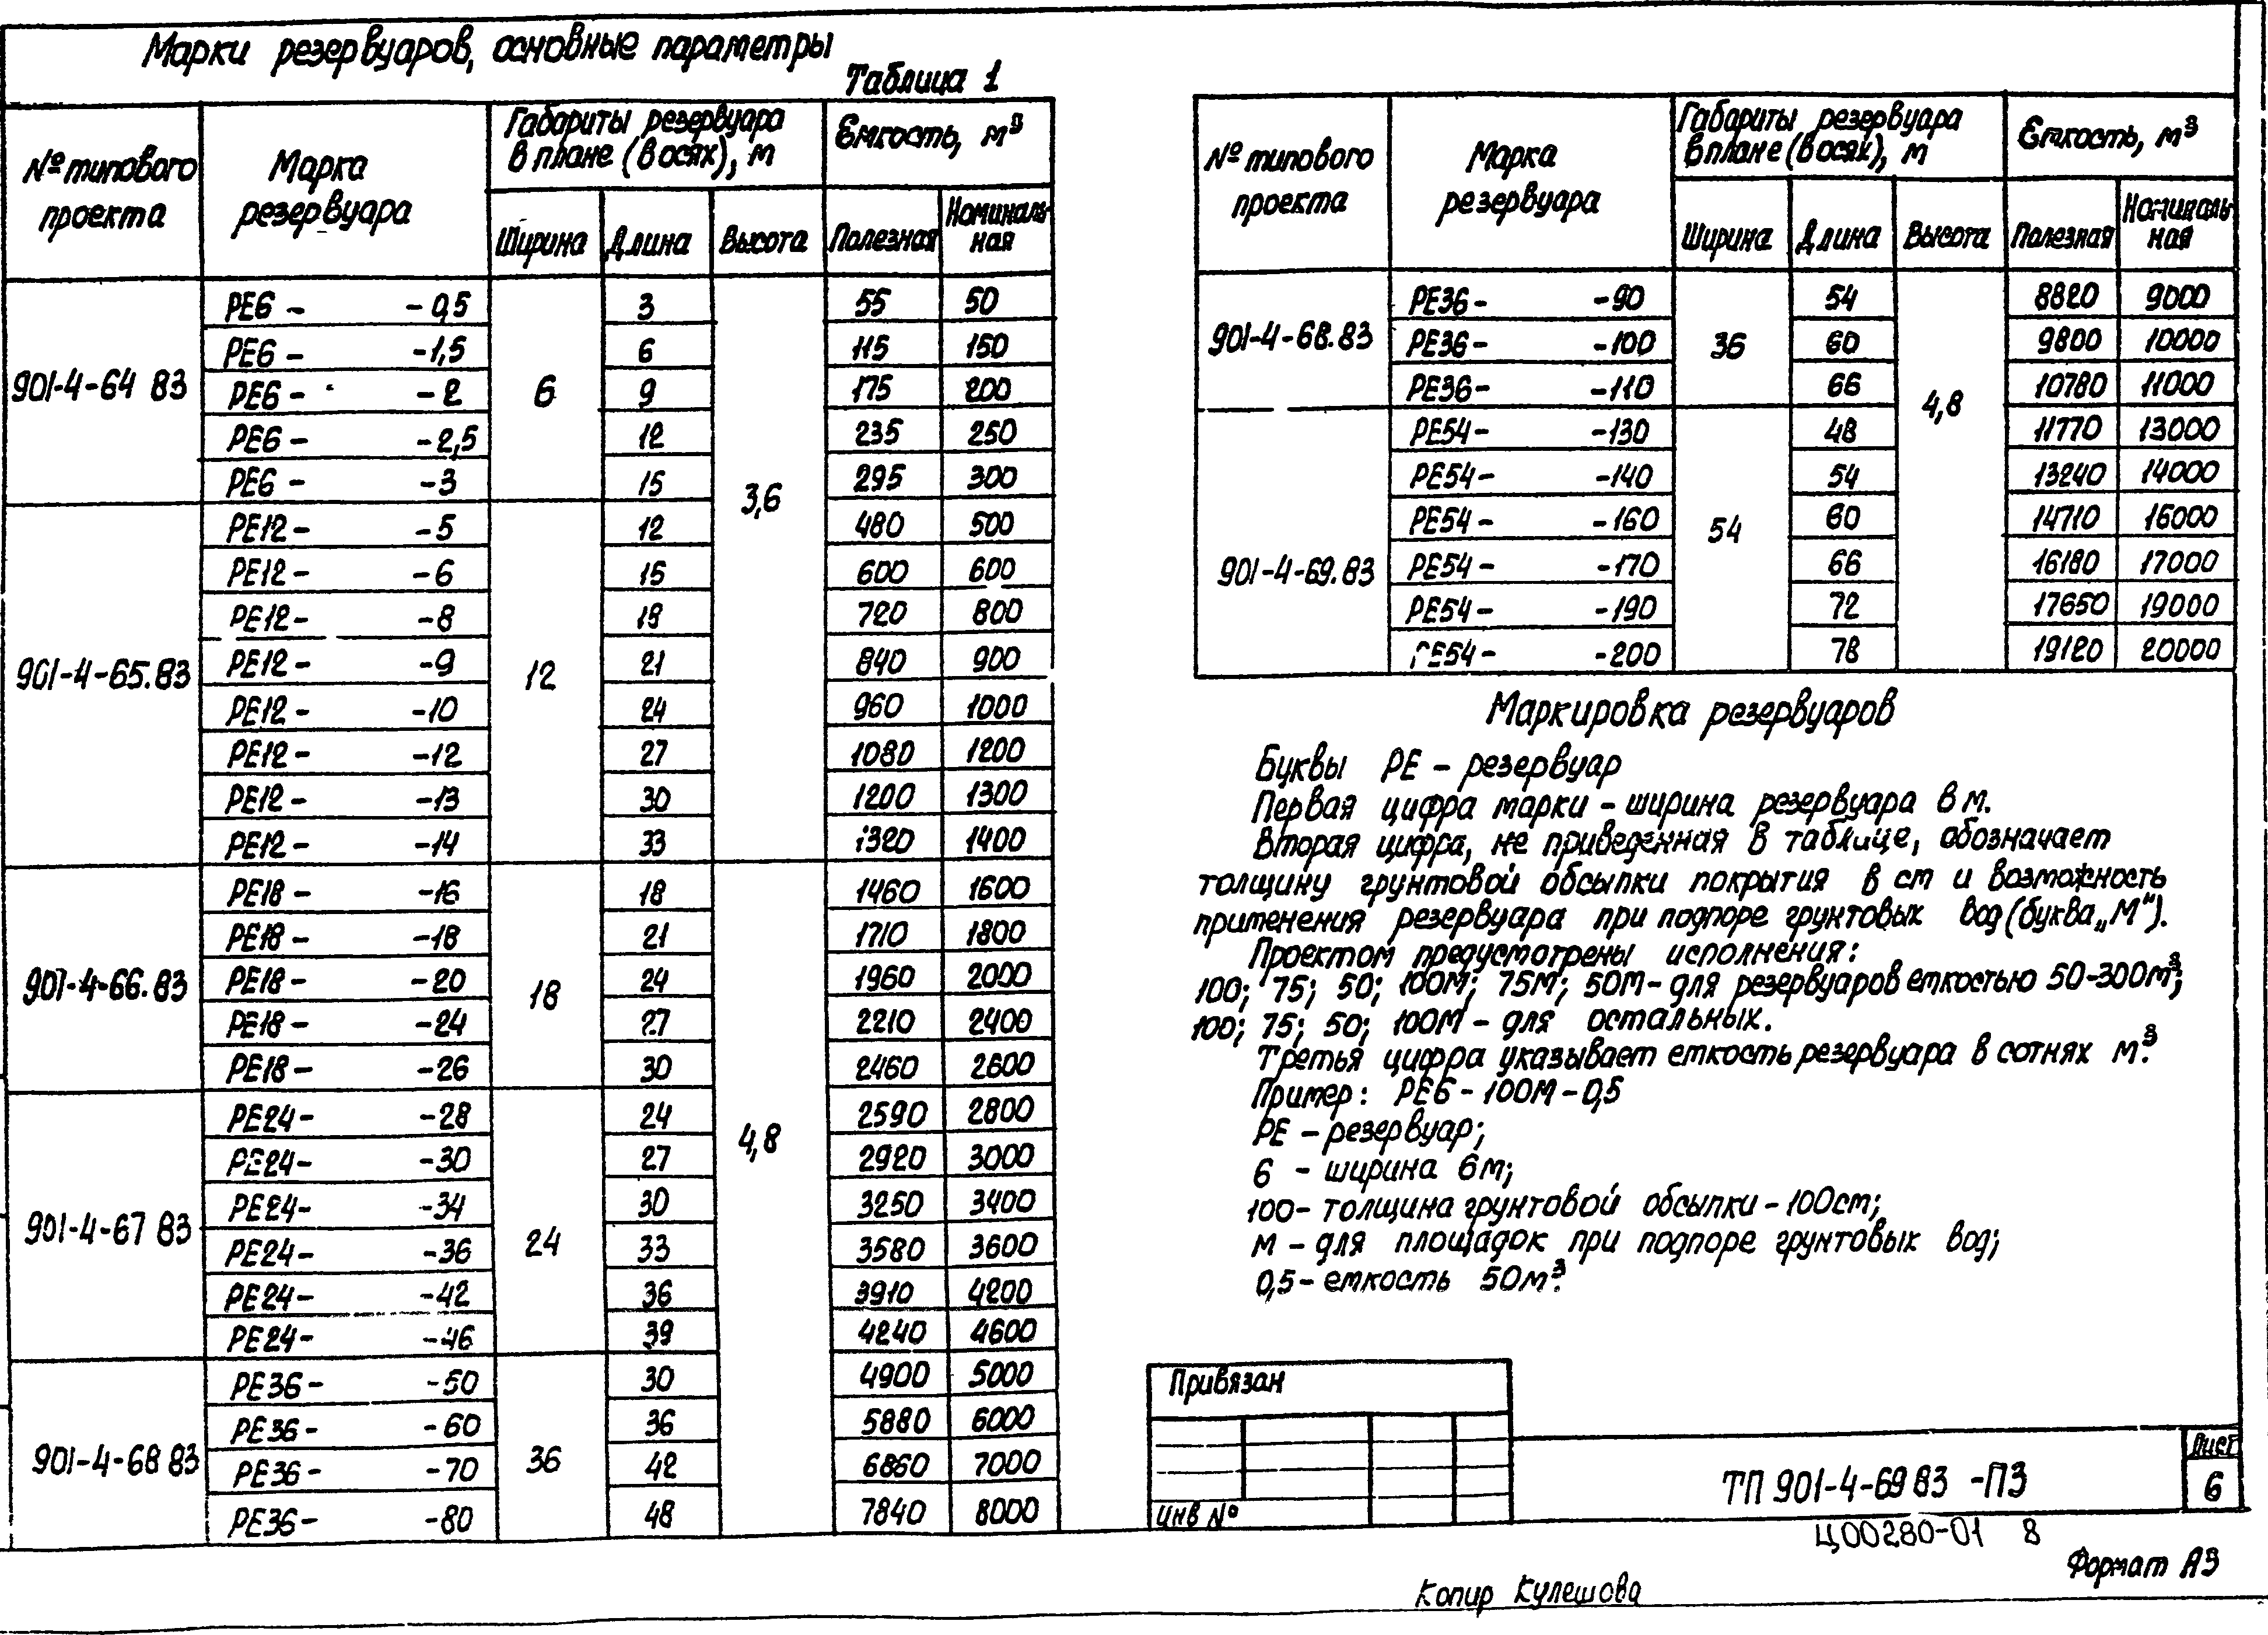 Марки резервуаров, основные параметры
Таблица 1
№ типового проекта | Марка резервуара | Габариты резервуара в плане (в осях), м | Емкость, м³
Ширина | Длина | Высота | Полезная | Номинальная
901-4-64 83 | РЕ6 - - 0,5 | 6 | 3 | 3,6 | 55 | 50
РЕ6 - -1,5 | 6 | 115 | 150
РЕ6 - -2 | 9 | 175 | 200
РЕ6 - -2,5 | 12 | 235 | 250
РЕ6 - -3 | 15 | 295 | 300
901-4-65.83 | РЕ12 - -5 | 12 | 12 | 480 | 500
РЕ12 - -6 | 15 | 600 | 600
РЕ12 - -8 | 18 | 720 | 800
РЕ12 - -9 | 21 | 840 | 900
РЕ12 - -10 | 24 | 960 | 1000
РЕ12 - -12 | 27 | 1080 | 1200
РЕ12 - -13 | 30 | 1200 | 1300
РЕ12 - -14 | 33 | 1320 | 1400
901-4-66.83 | РЕ18 - -16 | 18 | 18 | 4,8 | 1460 | 1600
РЕ18 - -18 | 21 | 1710 | 1800
РЕ18 - -20 | 24 | 1960 | 2000
РЕ18 - -24 | 27 | 2210 | 2400
РЕ18 - -26 | 30 | 2460 | 2600
901-4-67 83 | РЕ24 - -28 | 24 | 24 | 2590 | 2800
РЕ24 - -30 | 27 | 2920 | 3000
РЕ24 - -34 | 30 | 3250 | 3400
РЕ24 - -36 | 33 | 3580 | 3600
РЕ24 - -42 | 36 | 3910 | 4200
РЕ24 - -46 | 39 | 4240 | 4600
901-4-68 83 | РЕ36 - -50 | 36 | 30 | 4900 | 5000
РЕ36 - -60 | 36 | 5880 | 6000
РЕ36 - -70 | 42 | 6860 | 7000
РЕ36 - -80 | 48 | 7840 | 8000
№ типового проекта | Марка резервуара | Габариты резервуара в плане (в осях), м | Емкость, м³
Ширина | Длина | Высота | Полезная | Номинальная
901-4-68.83 | РЕ36 - -90 | 36 | 54 | 4,8 | 8820 | 9000
РЕ36 - -100 | 60 | 9800 | 10000
РЕ36 - -110 | 66 | 10780 | 11000
901-4-69.83 | РЕ54 - -130 | 54 | 48 | 11770 | 13000
РЕ54 - -140 | 54 | 13240 | 14000
РЕ54 - -160 | 60 | 14710 | 16000
РЕ54 - -170 | 66 | 16180 | 17000
РЕ54 - -190 | 72 | 17650 | 19000
РЕ54 - -200 | 78 | 19120 | 20000
Маркировка резервуаров
Буквы РЕ - резервуар
Первая цифра марки - ширина резервуара в м.
Вторая цифра, не приведенная в таблице, обозначает
толщину грунтовой обсыпки покрытия в см и возможность
применения резервуара при подпоре грунтовых вод (буква „М").
Проектом предусмотрены исполнения:
100; 75; 50; 100М; 75М; 50М - для резервуаров емкостью 50-300м³;
100; 75; 50; 100М - для остальных.
Третья цифра указывает емкость резервуара в сотнях м³.
Пример: РЕ6 - 100М - 0,5
РЕ - резервуар;
6 - ширина 6м;
100 - толщина грунтовой обсыпки - 100см;
М - для площадок при подпоре грунтовых вод;
0,5 - емкость 50м³.
Привязан
Инв №
ТП 901-4-69 83 -ПЗ
Лист
6
Ц00280-01 8
Формат А3
Копир Кулешова